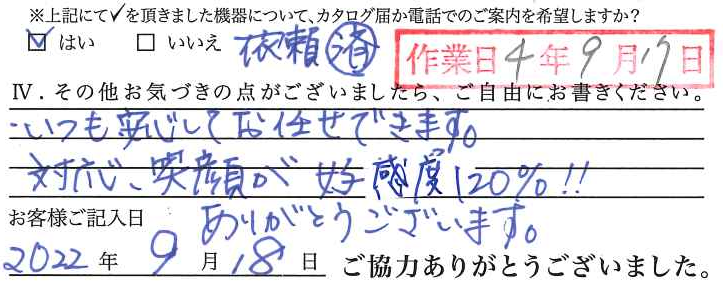 ※上記にて✓を頂きました機器について、カタログ届か電話でのご案内を希望しますか?
☑ はい □ いいえ 依頼 済
作業日 4年9月17日
Ⅳ．その他お気づきの点がございましたら、ご自由にお書きください。
・いつも安心してお任せできます。
対応、笑顔が 好感度120%!!
ありがとうございます。
お客様ご記入日
2022年 9月18日 ご協力ありがとうございました。